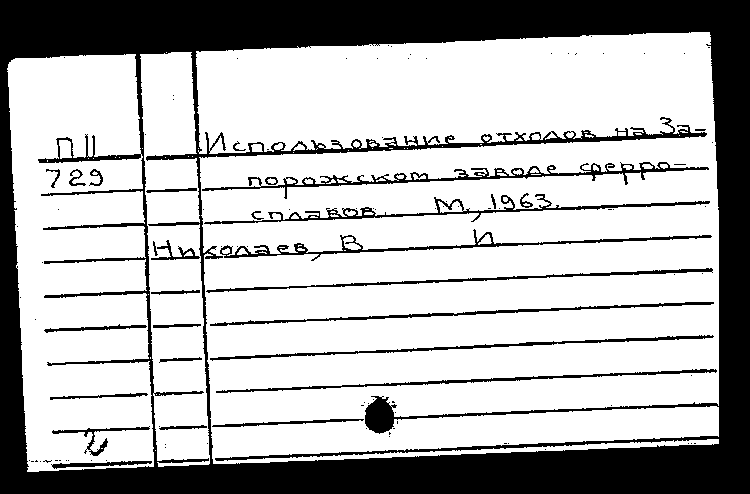 П II Использование отходов на За-
729 порожском заводе ферро-
сплавов. М., 1963.
Николаев, В И
2